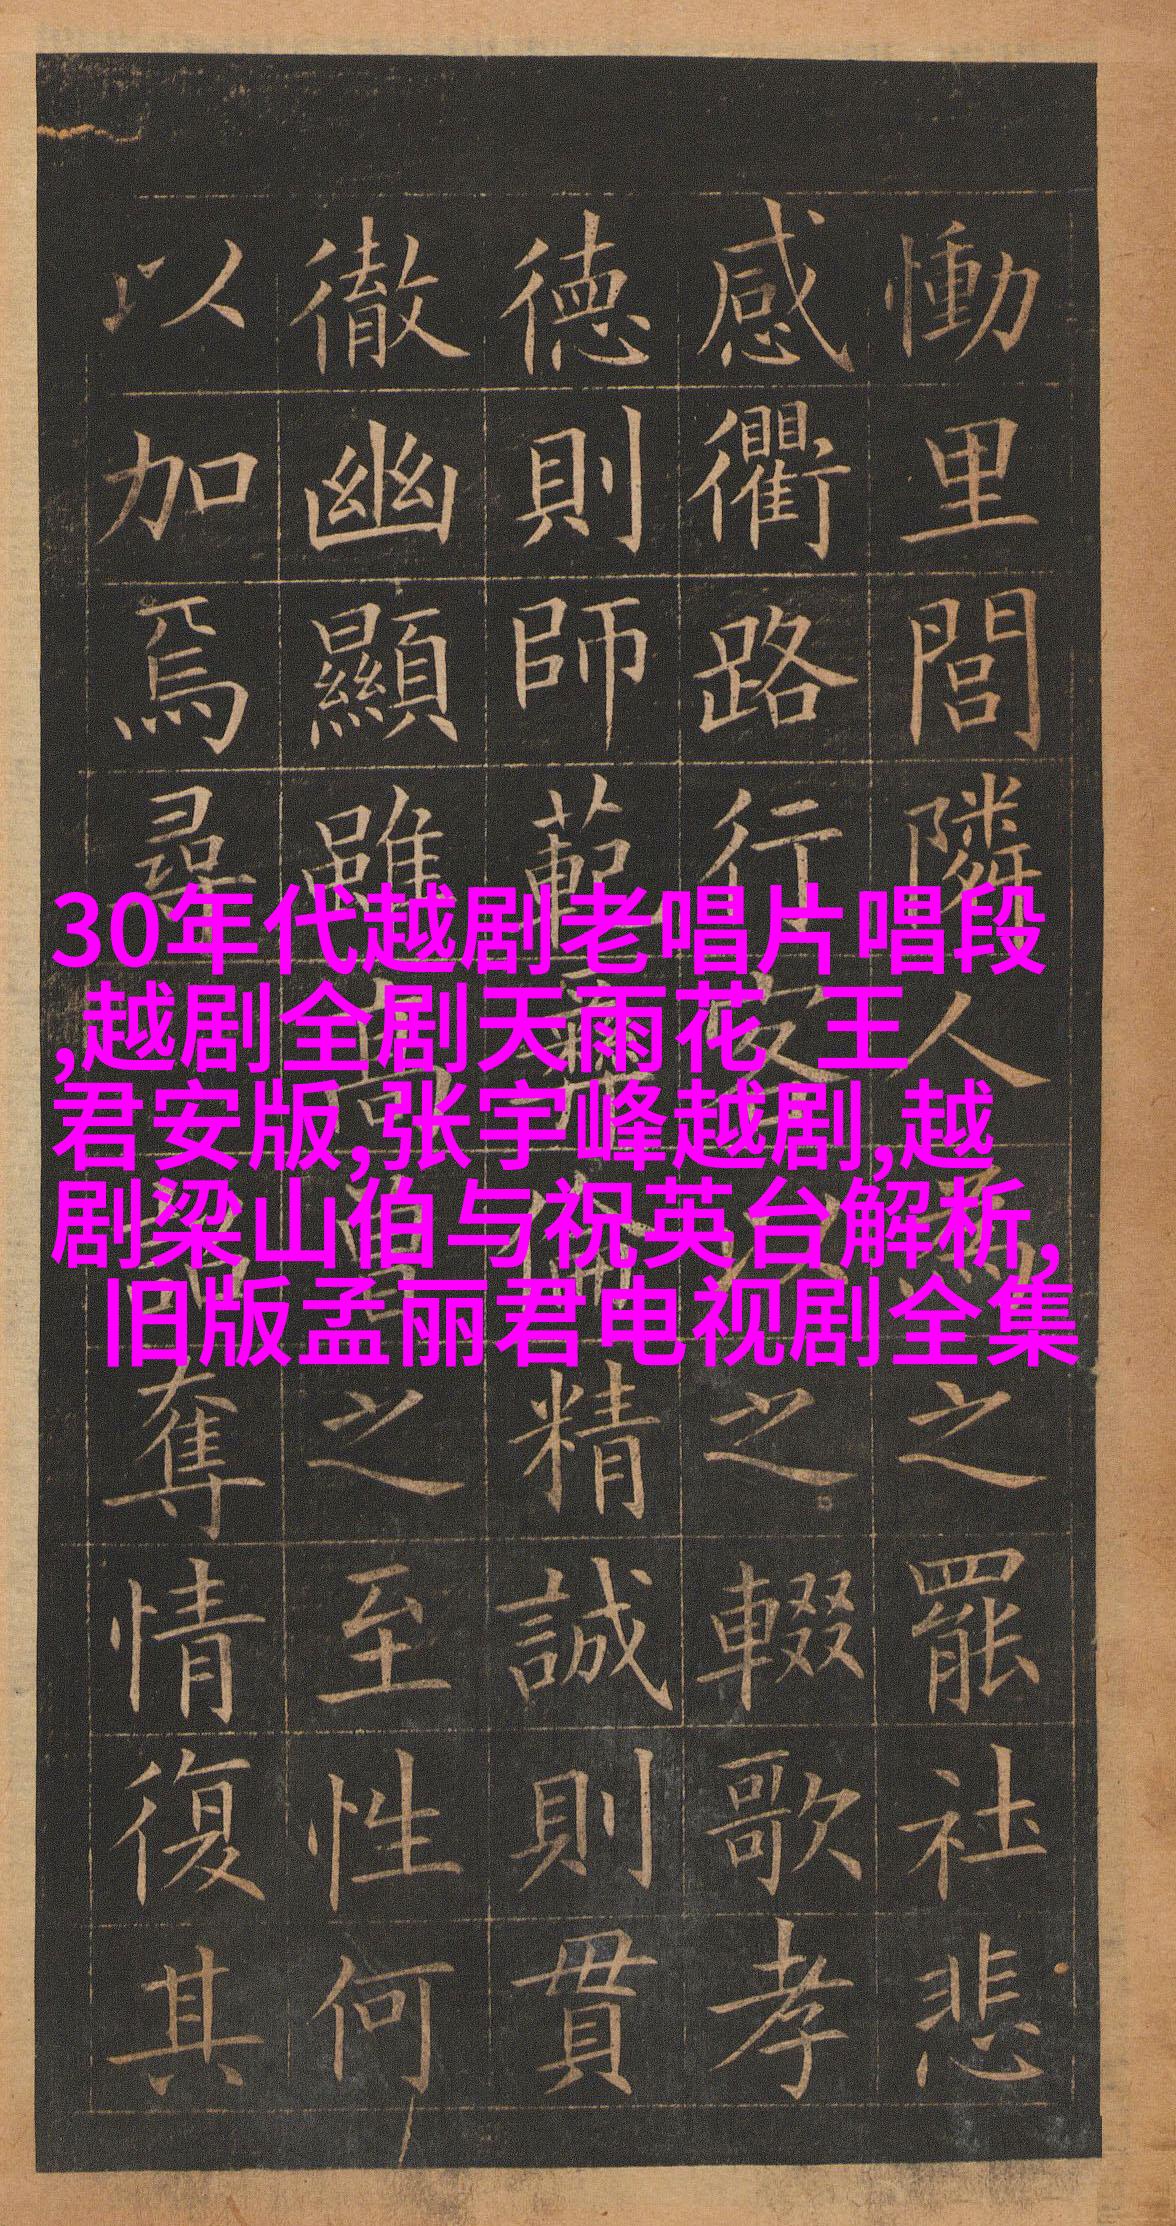 30年代越剧老唱片唱段
,越剧全剧天雨花 王
君安版,张宇峰越剧,越
剧梁山伯与祝英台解析,
旧版孟丽君电视剧全集
慟里閭隣人為之罷社悲
感衢路行客以之輟歌孝
德則師範彝倫精誠則貫
徹幽顯雖高曾之至性何
以加焉尋詔奪情復其